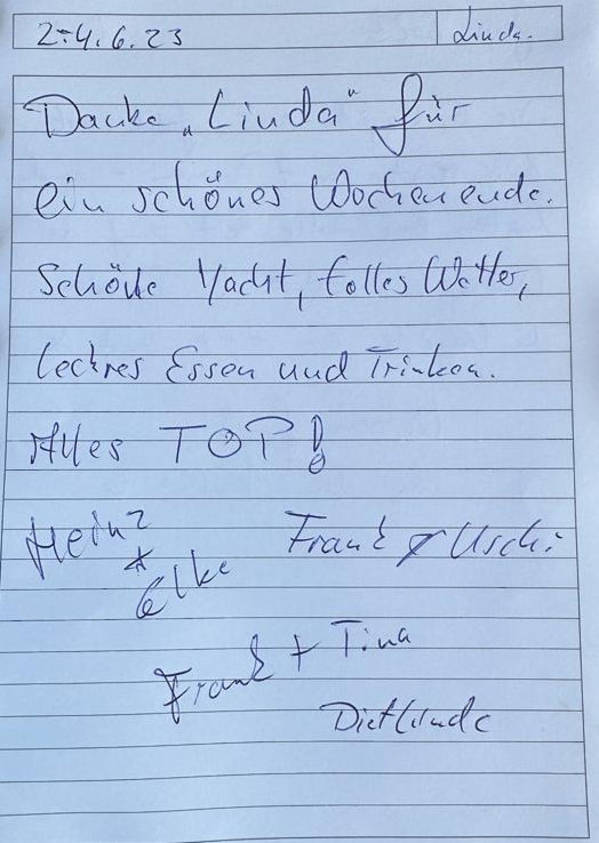 2.-4.6.23 Linda.
Danke „Linda" für
ein schönes Wochenende.
Schöne Yacht, tolles Wetter,
leckres Essen und Trinken.
Alles TOP!
Heinz Frank & Uschi
+
Elke
Frank + Tina
Dietlinde